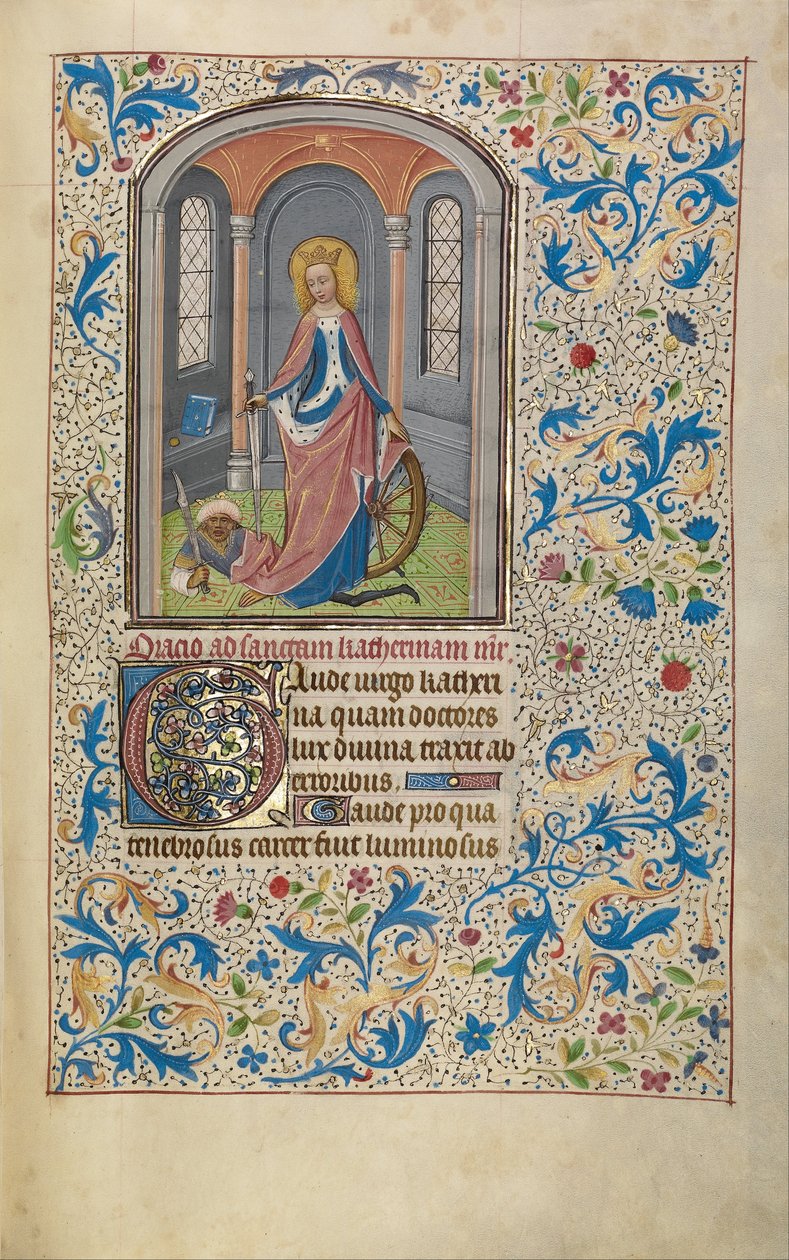 Oracio ad sanctam katherinam mr̄.
Gaude uirgo katheri
na quam doctores
lux diuina traxit ab
erroribus.
Gaude pro qua
tenebrosus carcer fuit luminosus